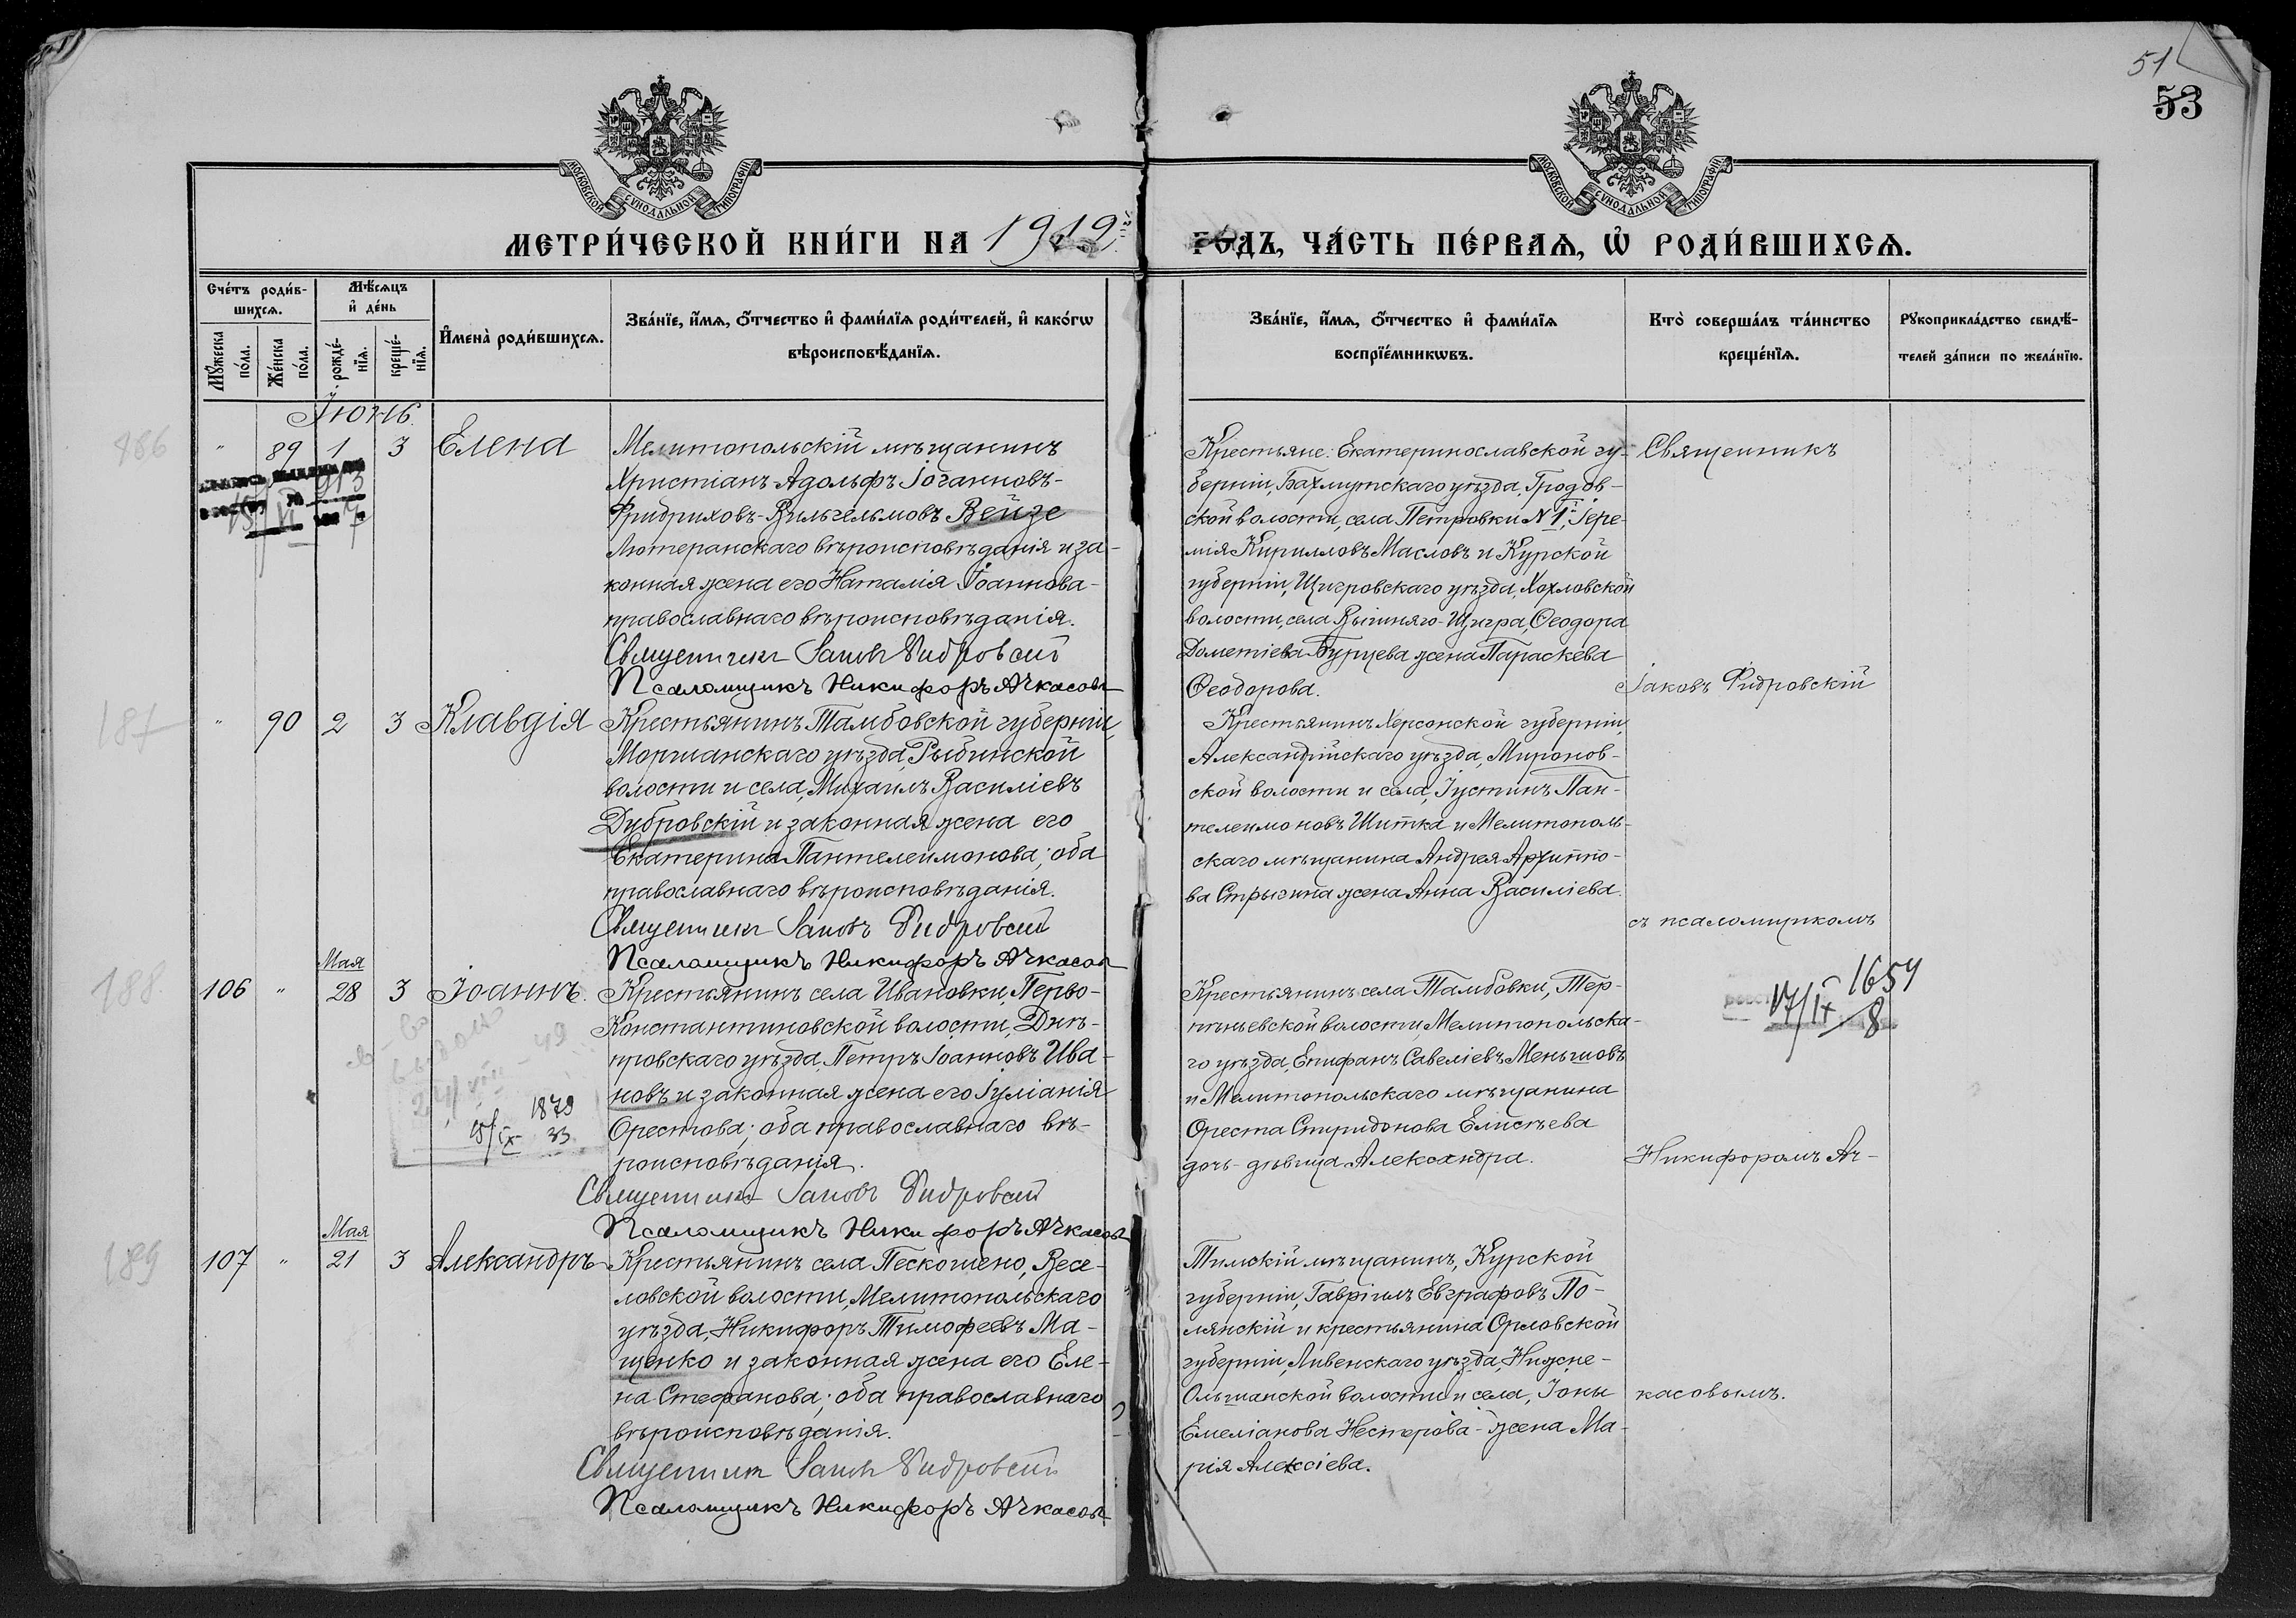 51
53
МОСКОВСКОЙ СУНОДАЛЬНОЙ ТИПОГРАФІИ
МОСКОВСКОЙ СУНОДАЛЬНОЙ ТИПОГРАФІИ
МЕТРИ́ЧЕСКОЙ КНИ́ГИ НА 1912
ГОДЪ, ЧА́СТЬ ПЕ́РВАЯ, Ѡ РОДИ́ВШИХСЯ.
Сче́тъ роди́вшихся.
Му́жеска по́ла.
Же́нска по́ла.
Мѣ́сяцъ и҆ де́нь
рожде́нїя.
креще́нїя.
И҆мена̀ роди́вшихся.
Зва́нїе, и҆́мя, ѻ҆́тчество и҆ фами́лїя роди́телей, и҆ како́гѡ
вѣроисповѣ́данїя.
Зва́нїе, и҆́мя, ѻ҆́тчество и҆ фами́лїя
воспрїе́мникѡвъ.
Кто̀ соверша́лъ та́инство
креще́нїя.
Рꙋкоприкла́дство свидѣ́-
телей за́писи по жела́нїю.
Іюнь.
186
" 89 1 3 Елена
Мелитопольскій мѣщанинъ
Христіанъ Адольфъ Іоганновъ-
Фридриховъ-Вильгельмовъ Вейзе
Лютеранскаго вѣроисповѣданія и за-
конная жена его Наталія Іоаннова-
православнаго вѣроисповѣданія.
Священникъ Іаковъ Фидровскій
Псаломщикъ Никифоръ Ачкасовъ
Крестьяне: Екатеринославской гу-
берніи, Бахмутскаго уѣзда, Гродов-
ской волости, села Петровки №1й, Іере-
мія Кирилловъ Масловъ и Курской
губерніи, Щигровскаго уѣзда, Хохловской
волости, села Вышняго-Щигра, Ѳеодора
Дометіева Бурцева жена Параскева
Ѳеодорова.
Священникъ
Іаковъ Фидровскій
187
" 90 2 3 Клавдія
Крестьянинъ Тамбовской губерніи,
Моршанскаго уѣзда, Рыбинской
волости и села, Михаилъ Василіевъ
Дубровскій и законная жена его
Екатерина Пантелеимонова; оба
православнаго вѣроисповѣданія.
Священникъ Іаковъ Фидровскій
Псаломщикъ Никифоръ Ачкасовъ
Крестьянинъ Херсонской губерніи,
Александрійскаго уѣзда, Миронов-
ской волости и села, Іустинъ Пан-
телеимоновъ Шитка и Мелитополь-
скаго мѣщанина Андрея Архиппо-
ва Стрыгина жена Анна Василіева.
съ псаломщикомъ
188
Мая
106 " 28 3 Іоаннъ.
Крестьянинъ села Ивановки, Перво-
Константиновской волости, Днѣ-
провскаго уѣзда, Петръ Іоанновъ Ива-
новъ и законная жена его Іуліанія
Орестова; оба православнаго вѣ-
роисповѣданія.
1879
Священникъ Іаковъ Фидровскій
Псаломщикъ Никифоръ Ачкасовъ
Крестьянинъ села Тамбовки, Тер-
пѣньевской волости, Мелитопольска-
го уѣзда, Епифанъ Савеліевъ Меньшовъ
и Мелитопольскаго мѣщанина
Ореста Спиридонова Елисѣева
дочь-дѣвица Александра.
1654
17/IX 8
Никифоромъ Ач-
189
Мая
107 " 21 3 Александръ
Крестьянинъ села Пескошено, Весе-
ловской волости, Мелитопольскаго
уѣзда, Никифоръ Тимофеевъ Ма-
щенко и законная жена его Еле-
на Стефанова; оба православнаго
вѣроисповѣданія.
Священникъ Іаковъ Фидровскій
Псаломщикъ Никифоръ Ачкасовъ
Тимскій мѣщанинъ, Курской
губерніи, Гавріилъ Евграфовъ По-
лянскій и крестьянина Орловской
губерніи, Ливенскаго уѣзда, Нижне-
Ольшанской волости и села, Іоны
Емеліанова Нестерова-жена Ма-
рія Алексіева.
касовымъ.